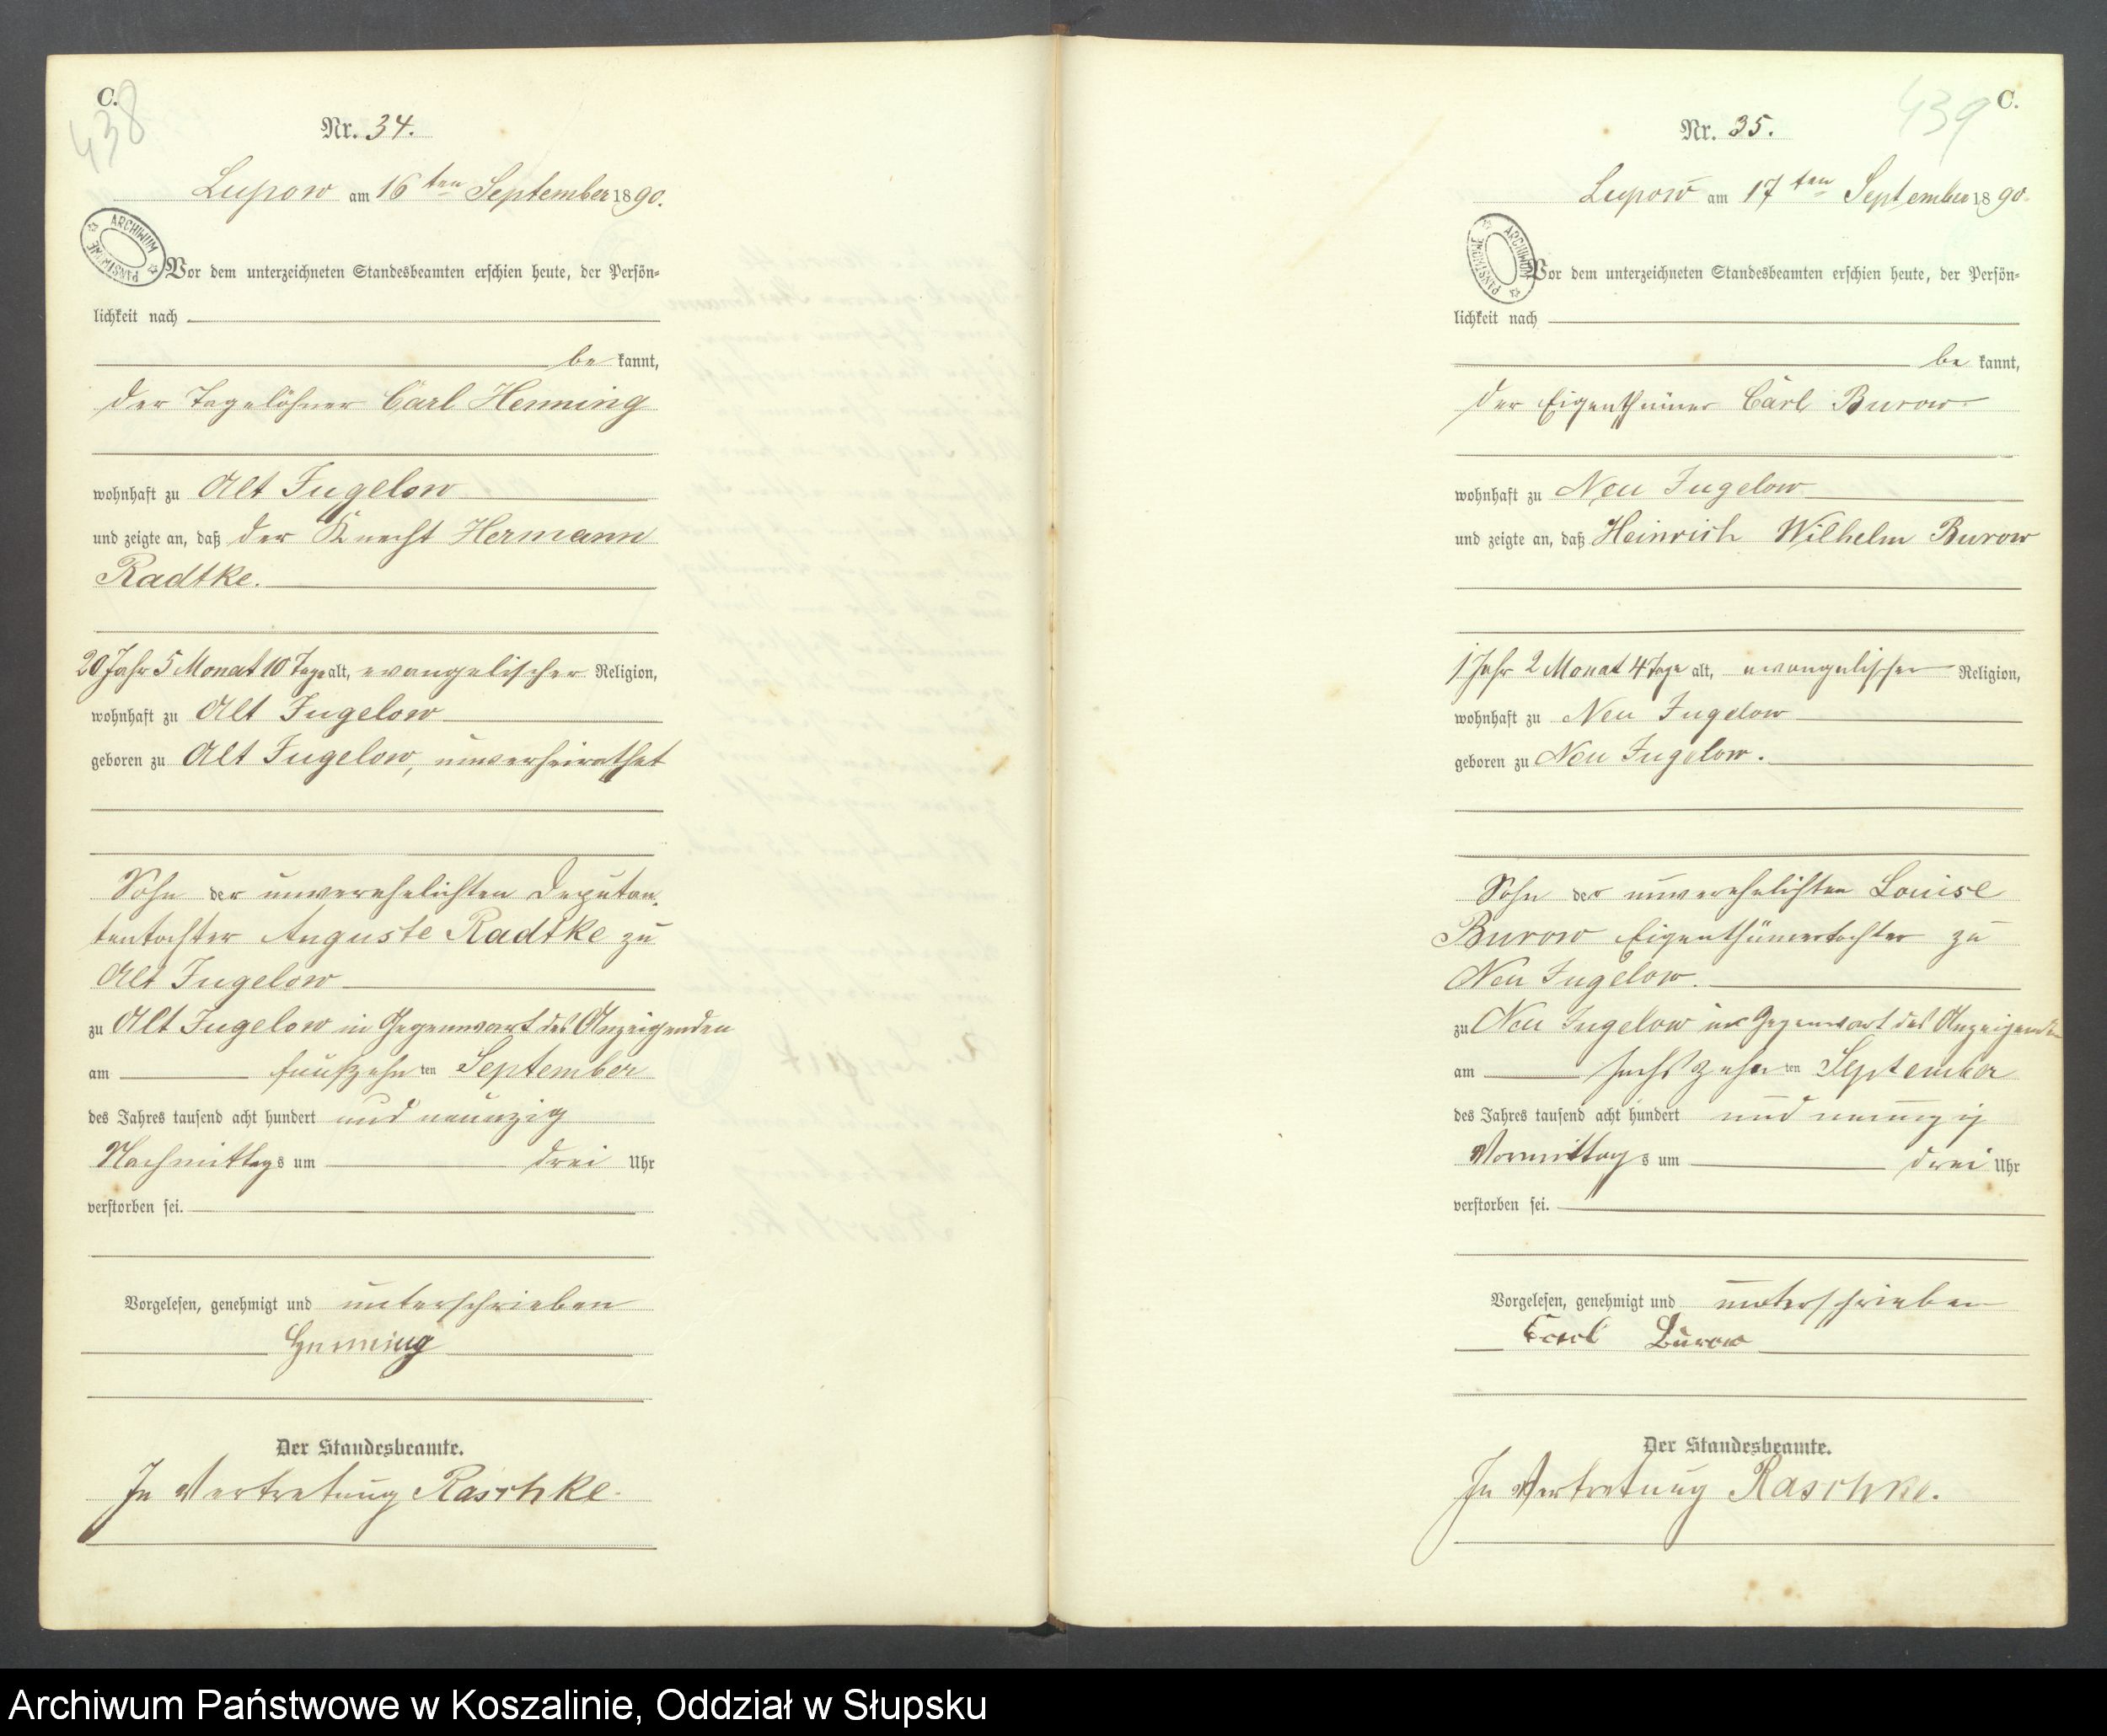 C.
438
Nr. 34.
Lupow am 16 ten September 1890.
ARCHIWUM PAŃSTWOWE
Vor dem unterzeichneten Standesbeamten erschien heute, der Persön=
lichkeit nach
be kannt,
der Tagelöhner Carl Henning
wohnhaft zu Alt Jugelow
und zeigte an, daß der Knecht Hermann
Radtke.
20 Jahr 5 Monat 10 Tage alt, evangelischer Religion,
wohnhaft zu Alt Jugelow
geboren zu Alt Jugelow, unverheirathet
Sohn der unverehelichten Deputan-
tentochter Auguste Radtke zu
Alt Jugelow
zu Alt Jugelow in Gegenwart des Anzeigenden
am fünfzehn ten September
des Jahres tausend acht hundert und neunzig
Nachmittags um drei Uhr
verstorben sei.
Vorgelesen, genehmigt und unterschrieben
Henning
Der Standesbeamte.
In Vertretung Raschke.
439
C.
Nr. 35.
Lupow am 17 ten September 1890.
ARCHIWUM PAŃSTWOWE
Vor dem unterzeichneten Standesbeamten erschien heute, der Persön=
lichkeit nach
be kannt,
der Eigenthümer Carl Burow
wohnhaft zu Neu Jugelow
und zeigte an, daß Heinrich Wilhelm Burow
1 Jahr 2 Monat 4 Tage alt, evangelischer Religion,
wohnhaft zu Neu Jugelow
geboren zu Neu Jugelow.
Sohn der unverehelichten Louise
Burow Eigenthümertochter zu
Neu Jugelow.
zu Neu Jugelow in Gegenwart des Anzeigenden
am sechszehn ten September
des Jahres tausend acht hundert und neunzig
Vormittags um drei Uhr
verstorben sei.
Vorgelesen, genehmigt und unterschrieben
Carl Burow
Der Standesbeamte.
In Vertretung Raschke.
Archiwum Państwowe w Koszalinie, Oddział w Słupsku